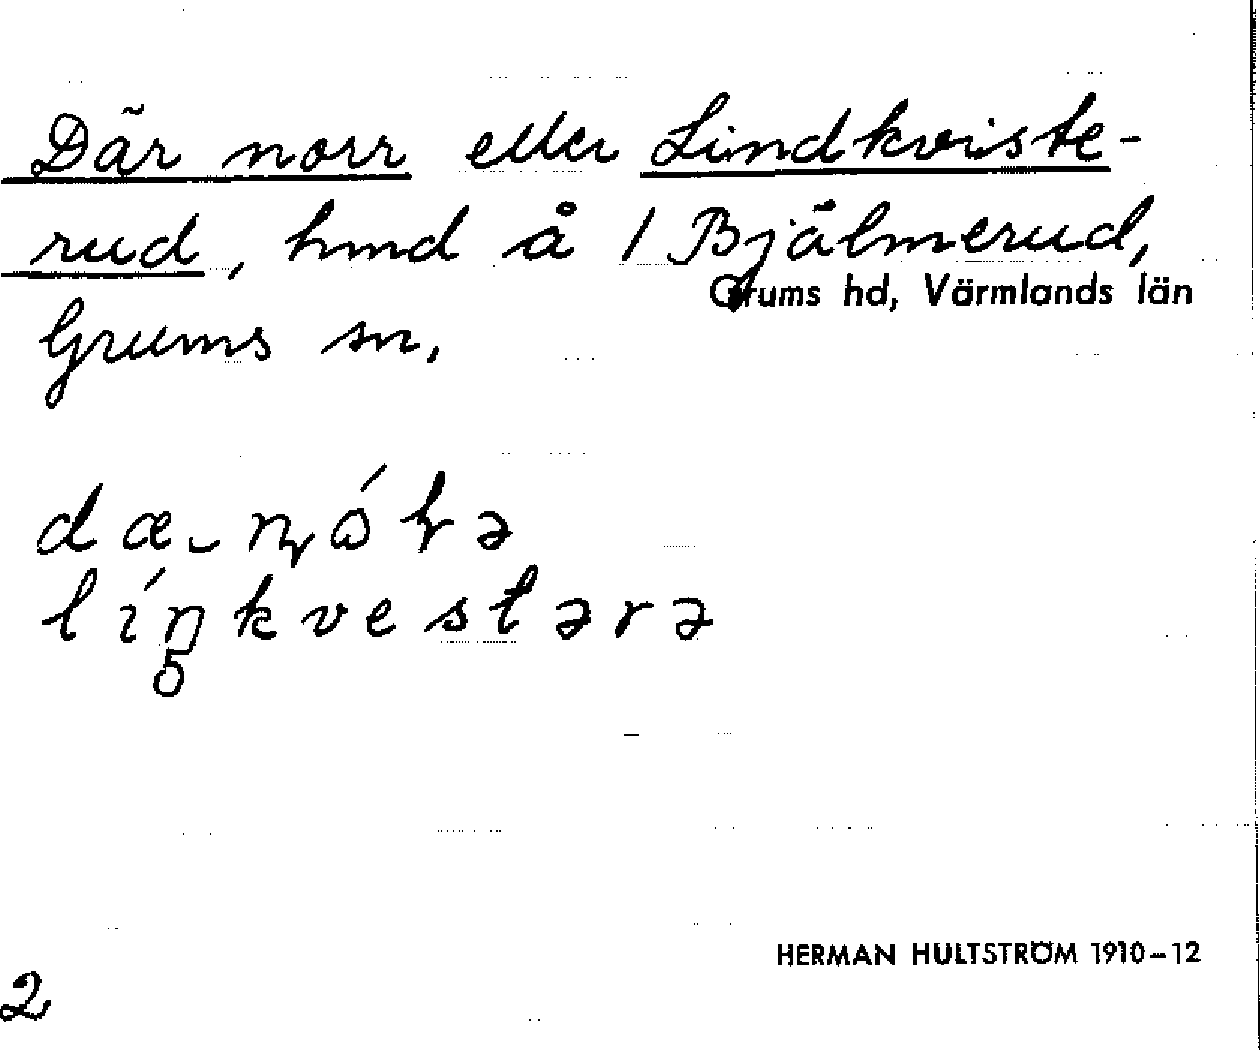 Där norr eller Lindkviste-
rud, hmd å 1 Bjälmerud,
Grums hd, Värmlands län
Grums sn,
línkvestərə
HERMAN HULTSTRÖM 1910–12
2